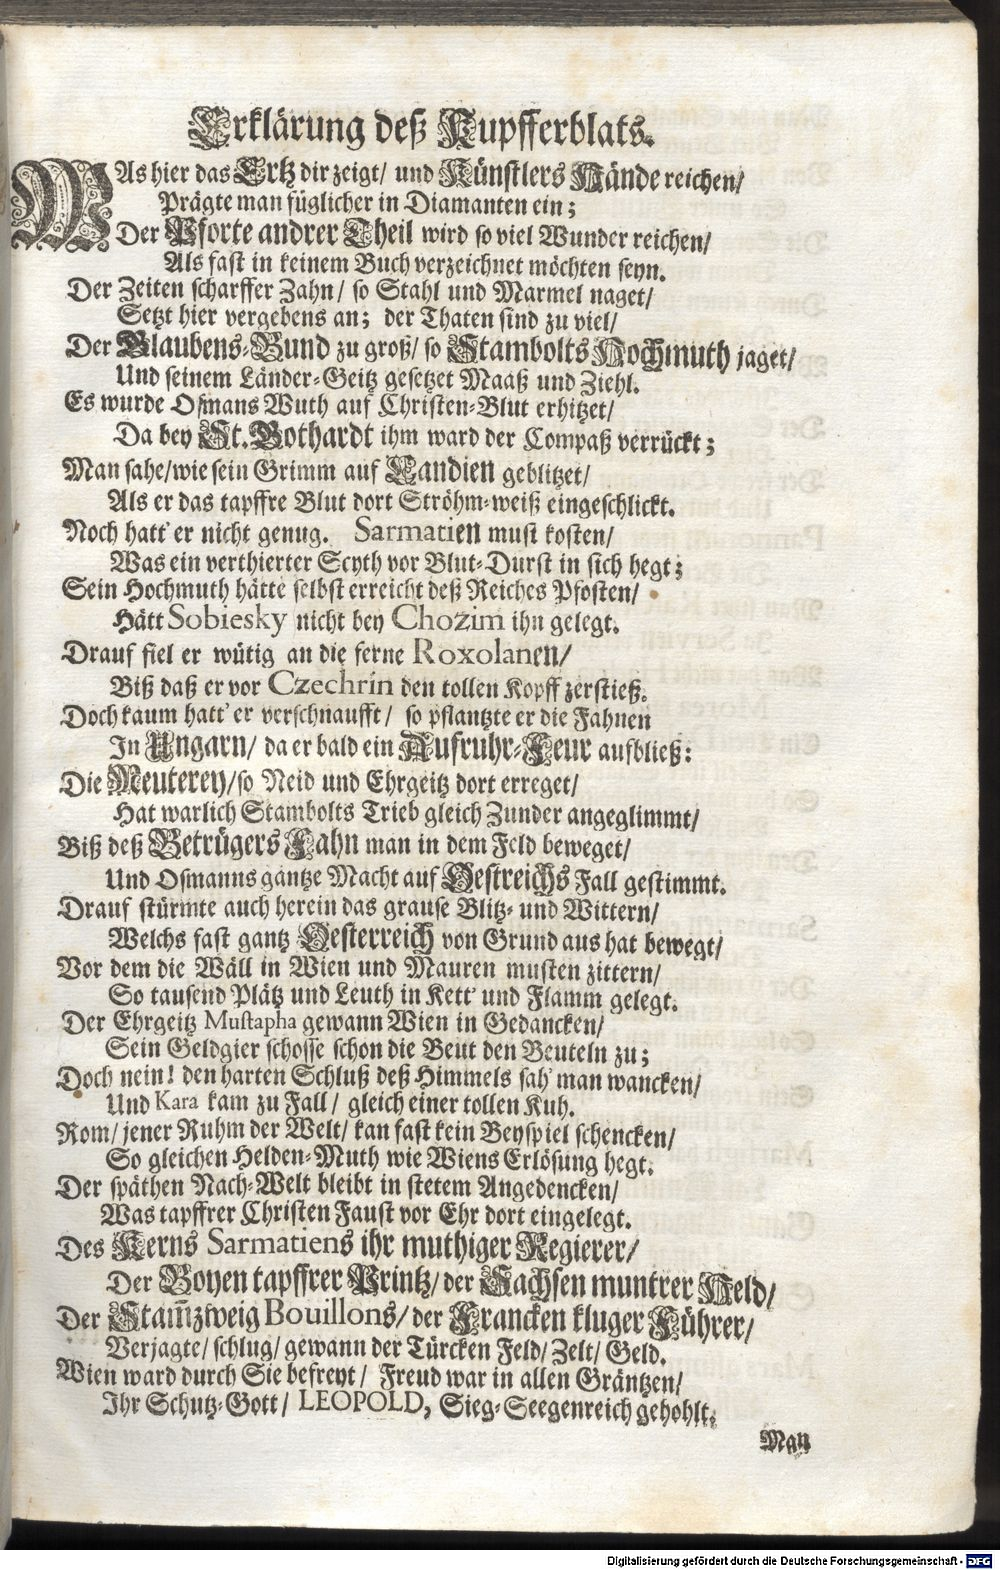 Erklärung deß Kupfferblats.
WAs hier das Ertz dir zeigt/ und Künstlers Hände reichen/
Prägte man füglicher in Diamanten ein;
Der Pforte andrer Theil wird so viel Wunder reichen/
Als fast in keinem Buch verzeichnet möchten seyn.
Der Zeiten scharffer Zahn/ so Stahl und Marmel naget/
Setzt hier vergebens an; der Thaten sind zu viel/
Der Glaubens-Bund zu groß/ so Stambolts Hochmuth jaget/
Und seinem Länder-Geitz gesetzet Maaß und Ziehl.
Es wurde Osmans Wuth auf Christen-Blut erhitzet/
Da bey St. Gothardt ihm ward der Compaß verrückt;
Man sahe/wie sein Grimm auf Candien geblitzet/
Als er das tapffre Blut dort Ströhm-weiß eingeschlickt.
Noch hatt' er nicht genug. Sarmatien must kosten/
Was ein verthierter Scyth vor Blut-Durst in sich hegt;
Sein Hochmuth hätte selbst erreicht deß Reiches Pfosten/
Hätt Sobiesky nicht bey Chozim ihn gelegt.
Drauf fiel er wütig an die ferne Roxolanen/
Biß daß er vor Czechrin den tollen Kopff zerstieß.
Doch kaum hatt' er verschnaufft/ so pflantzte er die Fahnen
In Ungarn/ da er bald ein Aufruhr-Feur aufbließ:
Die Meuterey/so Neid und Ehrgeitz dort erreget/
Hat warlich Stambolts Trieb gleich Zunder angeglimmt/
Biß deß Betrügers Fahn man in dem Feld beweget/
Und Osmanns gantze Macht auf Oestreichs Fall gestimmt.
Drauf stürmte auch herein das grause Blitz- und Wittern/
Welchs fast gantz Oesterreich von Grund aus hat bewegt/
Vor dem die Wäll in Wien und Mauren musten zittern/
So tausend Plätz und Leuth in Kett' und Flamm gelegt.
Der Ehrgeitz Mustapha gewann Wien in Gedancken/
Sein Geldgier schosse schon die Beut den Beuteln zu;
Doch nein! den harten Schluß deß Himmels sah' man wancken/
Und Kara kam zu Fall/ gleich einer tollen Kuh.
Rom/ jener Ruhm der Welt/ kan fast kein Beyspiel schencken/
So gleichen Helden-Muth wie Wiens Erlösung hegt.
Der späthen Nach-Welt bleibt in stetem Angedencken/
Was tapffrer Christen Faust vor Ehr dort eingelegt.
Des Kerns Sarmatiens ihr muthiger Regierer/
Der Boyen tapffrer Printz/ der Sachsen muntrer Held/
Der Stam̄zweig Bouillons/ der Francken kluger Führer/
Verjagte/ schlug/ gewann der Türcken Feld/ Zelt/ Geld.
Wien ward durch Sie befreyt/ Freud war in allen Gräntzen/
Ihr Schutz-Gott/ LEOPOLD, Sieg-Seegenreich gehohlt;
Man
Digitalisierung gefördert durch die Deutsche Forschungsgemeinschaft - DFG